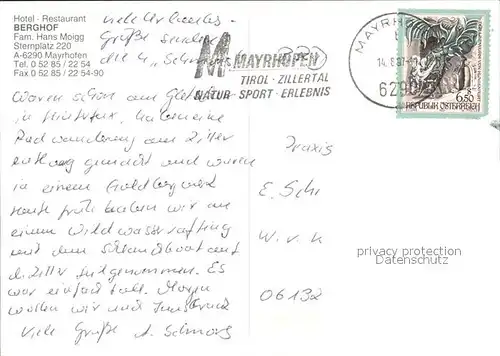 Hotel · Restaurant
BERGHOF
Fam. Hans Moigg
Sternplatz 220
A-6290 Mayrhofen
Tel. 0 52 85 / 22 54
Fax 0 52 85 / 22 54-90
viele Urlaubs-
grüße senden
die
M MAYRHOFEN
TIROL · ZILLERTAL
NATUR · SPORT · ERLEBNIS
MAYRHOFEN
6290
650
REPUBLIK ÖSTERREICH
Waren schon am Gletscher
in Hintertux, haben eine
Radwanderung am Ziller
entlang gemacht und waren
in einem Goldbergwerk
Heute früh haben wir an
einem Wildwasserrafting
mit dem Schlauchboot auf
d. Ziller teilgenommen. Es
war einfach toll. Morgen
wollen wir nach Innsbruck
Viele Grüße
Praxis
E. Sch
W. v. K
06132
privacy protection
Datenschutz